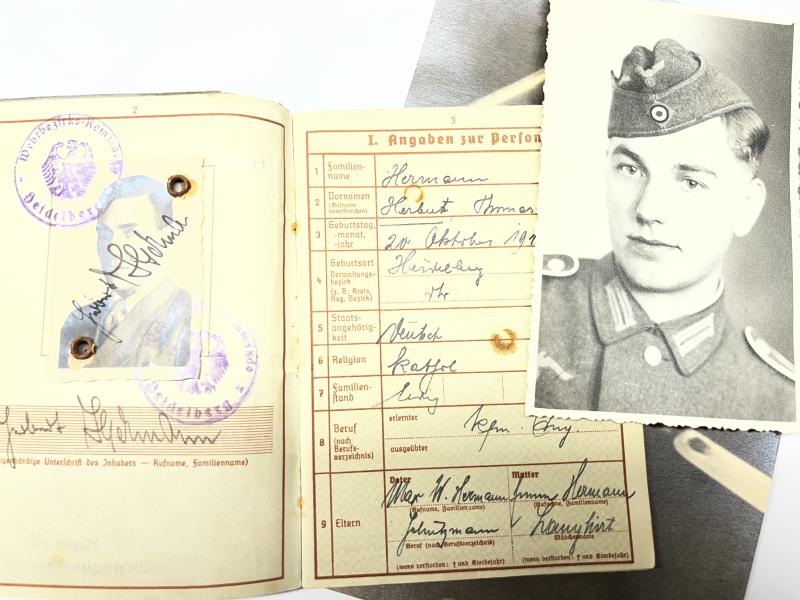 2
Wehrbezirks-Komman
Heidelberg
Heidelberg
Hermann
(Eigenhändige Unterschrift des Inhabers — Rufname, Familienname)
3
I. Angaben zur Person
1 Familien-
name
Hermann
2 Vornamen
(Rufname
unterstreichen)
Herbert, Thomas
3 Geburtstag,
-monat,
-jahr
20 Oktober 191
4 Geburtsort
Verwaltungs-
bezirk
(z. B. Kreis,
Reg. Bezirk)
Heidelberg
5 Staats-
angehörig-
keit
Deutsch
6 Religion
kathol
7 Familien-
stand
ledig
8 Beruf
(nach
Berufs-
verzeichnis)
erlernter
kfm. Ang.
ausgeübter
9 Eltern
Vater
Max W. Hermann
(Rufname, Familienname)
Schutzmann
Beruf (nach Berufsverzeichnis)
(wenn verstorben: † und Sterbejahr)
Mutter
Hermann
(Rufname, Familienname)
Mädchenname
(wenn verstorben: † und Sterbejahr)